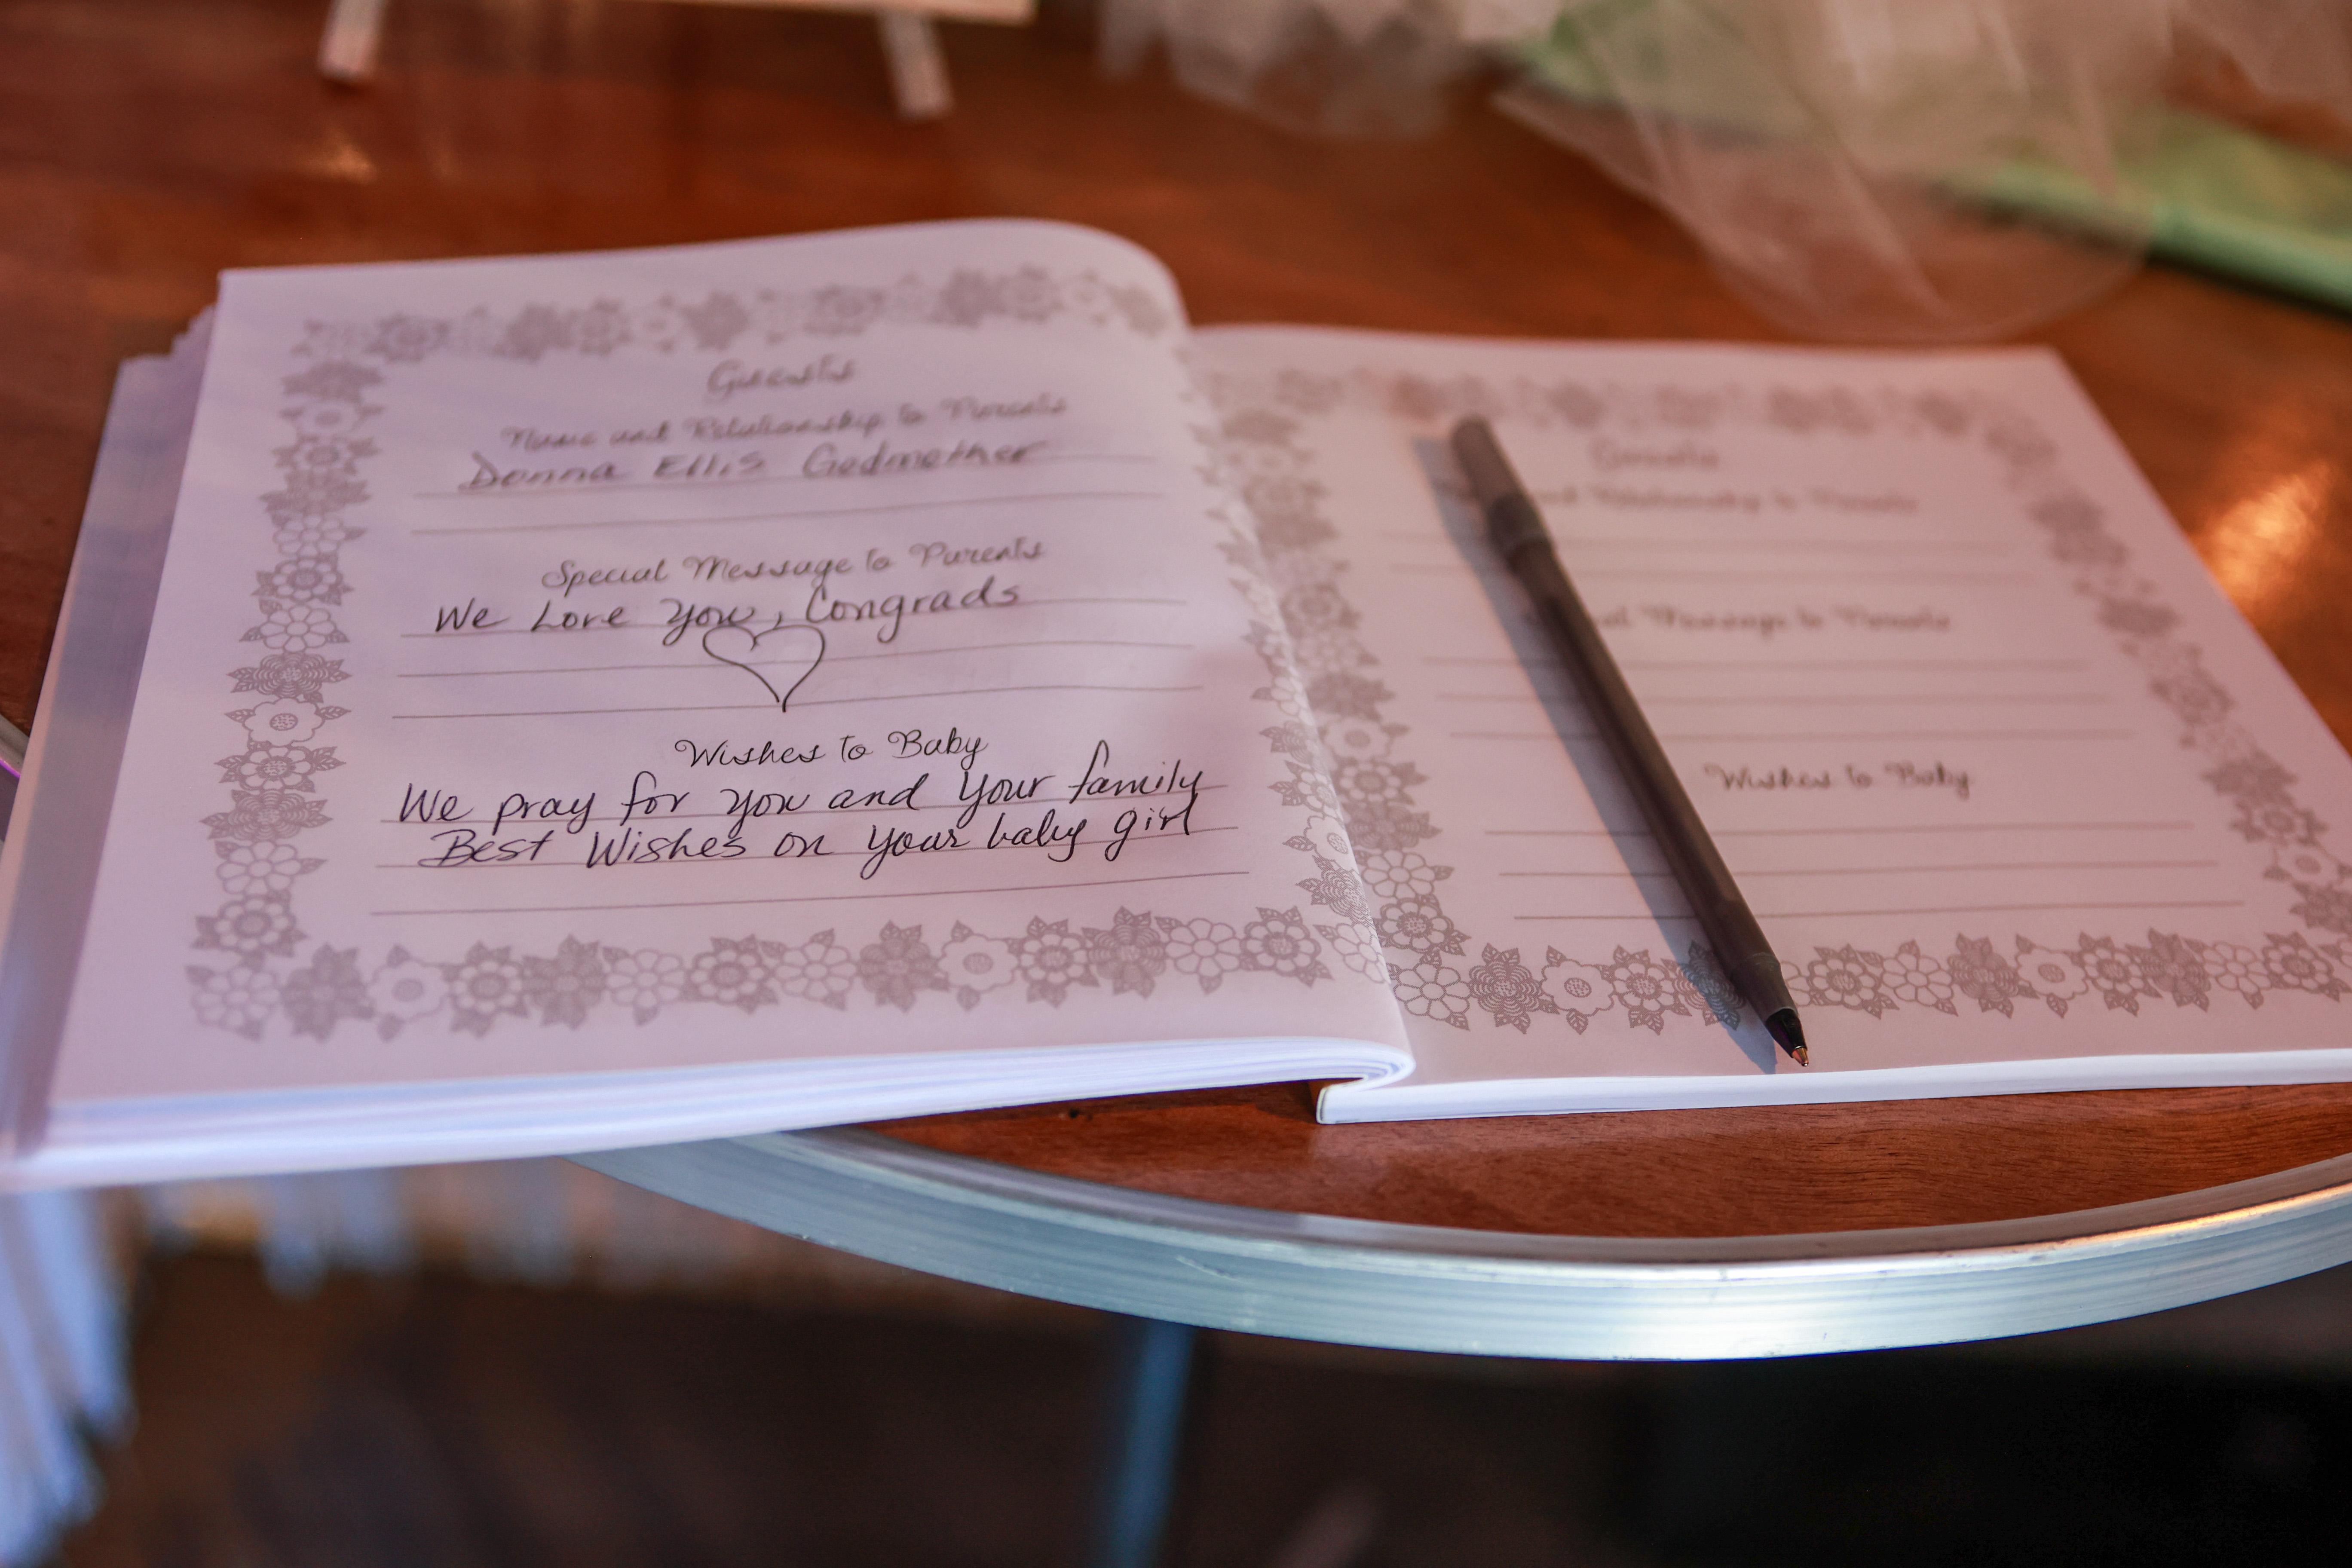 Guests
Name and Relationship to Parents
Donna Ellis Godmother
Special Message to Parents
We Love you, Congrads
Wishes to Baby
We pray for you and your family
Best Wishes on your baby girl
Guests
Relationship to Parents
Message to Parents
Wishes to Baby